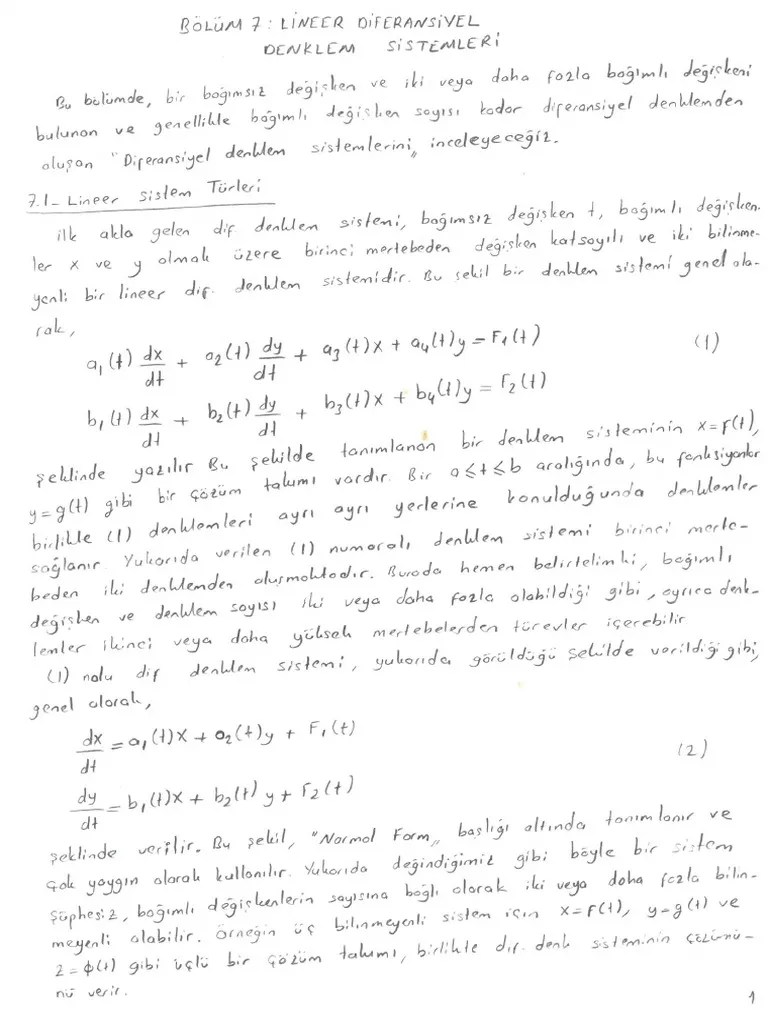 BÖLÜM 7 : LİNEER DİFERANSİYEL
DENKLEM SİSTEMLERİ
Bu bölümde, bir bağımsız değişken ve iki veya daha fazla bağımlı değişkeni
bulunan ve genellikle bağımlı değişken sayısı kadar diferansiyel denklemden
oluşan "Diferansiyel denklem sistemlerini" inceleyeceğiz.
7.1- Lineer Sistem Türleri
ilk akla gelen dif. denklem sistemi, bağımsız değişken t, bağımlı değişken-
ler x ve y olmak üzere birinci mertebeden değişken katsayılı ve iki bilinme-
yenli bir lineer dif. denklem sistemidir. Bu şekil bir denklem sistemi genel ola-
rak,
a₁(t) dx/dt + a₂(t) dy/dt + a₃(t)x + a₄(t)y = F₁(t) (1)
b₁(t) dx/dt + b₂(t) dy/dt + b₃(t)x + b₄(t)y = F₂(t)
şeklinde yazılır Bu şekilde tanımlanan bir denklem sisteminin x=f(t),
y=g(t) gibi bir çözüm takımı vardır. Bir a≤t≤b aralığında, bu fonksiyonlar
birlikte (1) denklemleri ayrı ayrı yerlerine konulduğunda denklemler
sağlanır. Yukarıda verilen (1) numaralı denklem sistemi birinci merte-
beden iki denklemden oluşmaktadır. Burada hemen belirtelim ki, bağımlı
değişken ve denklem sayısı iki veya daha fazla olabildiği gibi, ayrıca denk-
lemler ikinci veya daha yüksek mertebelerden türevler içerebilir
(1) nolu dif denklem sistemi, yukarıda görüldüğü şekilde verildiği gibi,
genel olarak,
dx/dt = a₁(t)x + a₂(t)y + F₁(t)
(2)
dy/dt = b₁(t)x + b₂(t)y + F₂(t)
şeklinde verilir. Bu şekil, "Normal Form" başlığı altında tanımlanır ve
çok yaygın olarak kullanılır. Yukarıda değindiğimiz gibi böyle bir sistem
şüphesiz, bağımlı değişkenlerin sayısına bağlı olarak iki veya daha fazla bilin-
meyenli olabilir. Örneğin üç bilinmeyenli sistem için x=f(t), y=g(t) ve
z=ϕ(t) gibi üçlü bir çözüm takımı, birlikte dif. denk sisteminin çözümü-
nü verir.
1